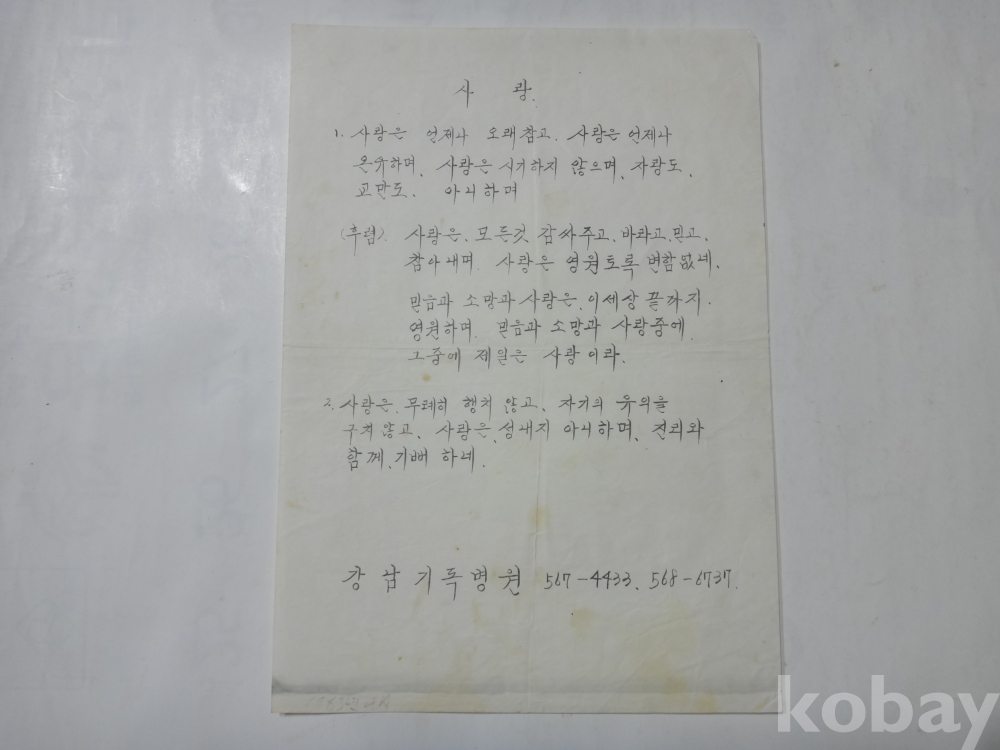 사 랑.
1. 사랑은 언제나 오래참고. 사랑은 언제나
온유하며, 사랑은 시기하지 않으며, 자랑도,
교만도. 아니하며
(후렴) 사랑은, 모든것 감싸주고, 바라고, 믿고,
참아내며 사랑은 영원토록 변함없네.
믿음과 소망과 사랑은, 이세상 끝까지.
영원하며, 믿음과 소망과 사랑중에
그중에 제일은 사랑이라.
2. 사랑은, 무례히 행치 않고, 자기의 유익을
구치않고, 사랑은, 성내지 아니하며, 진리와
함께, 기뻐 하네.
강남기독병원 567-4433. 568-6737.
kobay